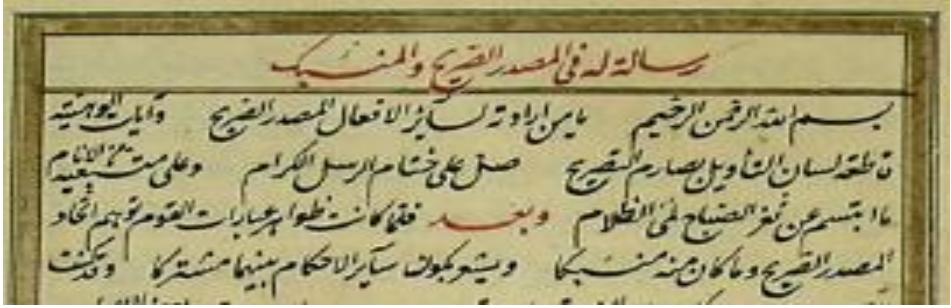 رسالة له في المصدر الصريح والمنسبك
بسم الله الرحمن الرحيم يا من ارادته لسائر الافعال المصدر الصريح وآيات الوهيته
قاطعة لسان التأويل بصارم التصريح صل على ختام الرسل الكرام وعلى متبعيه من الانام
ما ابتسم عن ثغر الصباح لمى الظلام وبعد فلما كانت ظواهر عبارات القوم توهم اتحاد
المصدر الصريح وما كان منه منسبكا ويشعر بكون سائر الاحكام بينهما مشتركا وقد كنت